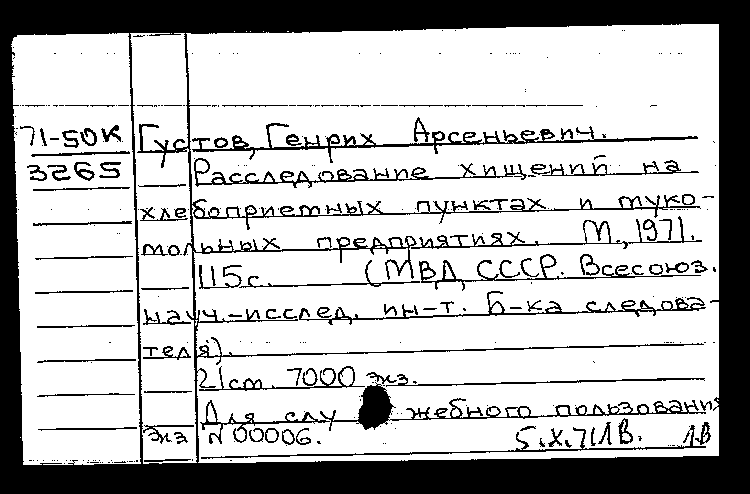 71-50К Густов, Генрих Арсеньевич.
3265 Расследование хищений на
хлебоприемных пунктах и муко-
мольных предприятиях. М., 1971.
115с. (МВД СССР. Всесоюз.
науч.-исслед. ин-т. Б-ка следова-
теля).
21см. 7000 экз.
Для слу жебного пользования
Экз N 00006. 5.X.71 ЛВ. ЛВ